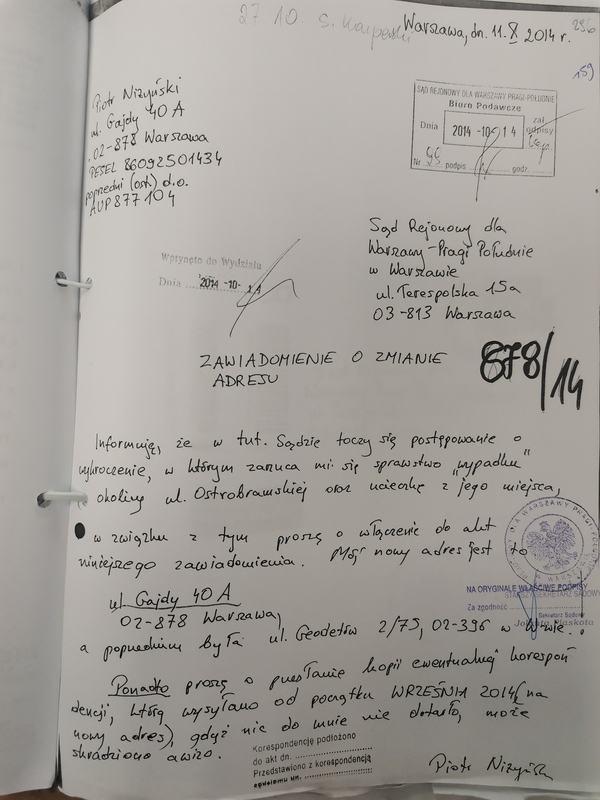 27 10. S. Karpeński
Warszawa, dn. 11.X 2014 r.
159
Piotr Niżyński
ul. Gajdy 40 A
02-878 Warszawa
PESEL 86092501434
poprzedni (ost.) d.o.
AUP 877104
SĄD REJONOWY DLA WARSZAWY PRAGI-POŁUDNIE
Biuro Podawcze
Dnia 2014 -10- 14
zał.
odpisy
Nr podpis godz.
Wpłynęło do Wydziału
Dnia 2014 -10- 14
Sąd Rejonowy dla
Warszawy-Pragi Południe
w Warszawie
ul. Terespolska 15a
03-813 Warszawa
ZAWIADOMIENIE O ZMIANIE
ADRESU
678/14
Informuję, że w tut. Sądzie toczy się postępowanie o
wykroczenie, w którym zarzuca mi się sprawstwo „wypadku"
w okolicy ul. Ostrobramskiej oraz ucieczkę z jego miejsca,
w związku z tym proszę o włączenie do akt
niniejszego zawiadomienia. Mój nowy adres jest to
ul. Gajdy 40 A
02-878 Warszawa,
a poprzednim była ul. Geodetów 2/75, 02-396 w W-wie.
NA ORYGINALE WŁAŚCIWE PODPISY
STARSZY SEKRETARZ SĄDOWY
Za zgodność
Sekretarz Sądowy
Ponadto proszę o przesłanie kopii ewentualnej korespon
dencji, którą wysyłano od początku WRZEŚNIA 2014 (na
nowy adres), gdyż nic do mnie nie dotarło, może
skradziono awizo.
Korespondencję podłożono
do akt dn.
Przedstawiono z korespondencją
sędziemu dn.
Piotr Niżyński